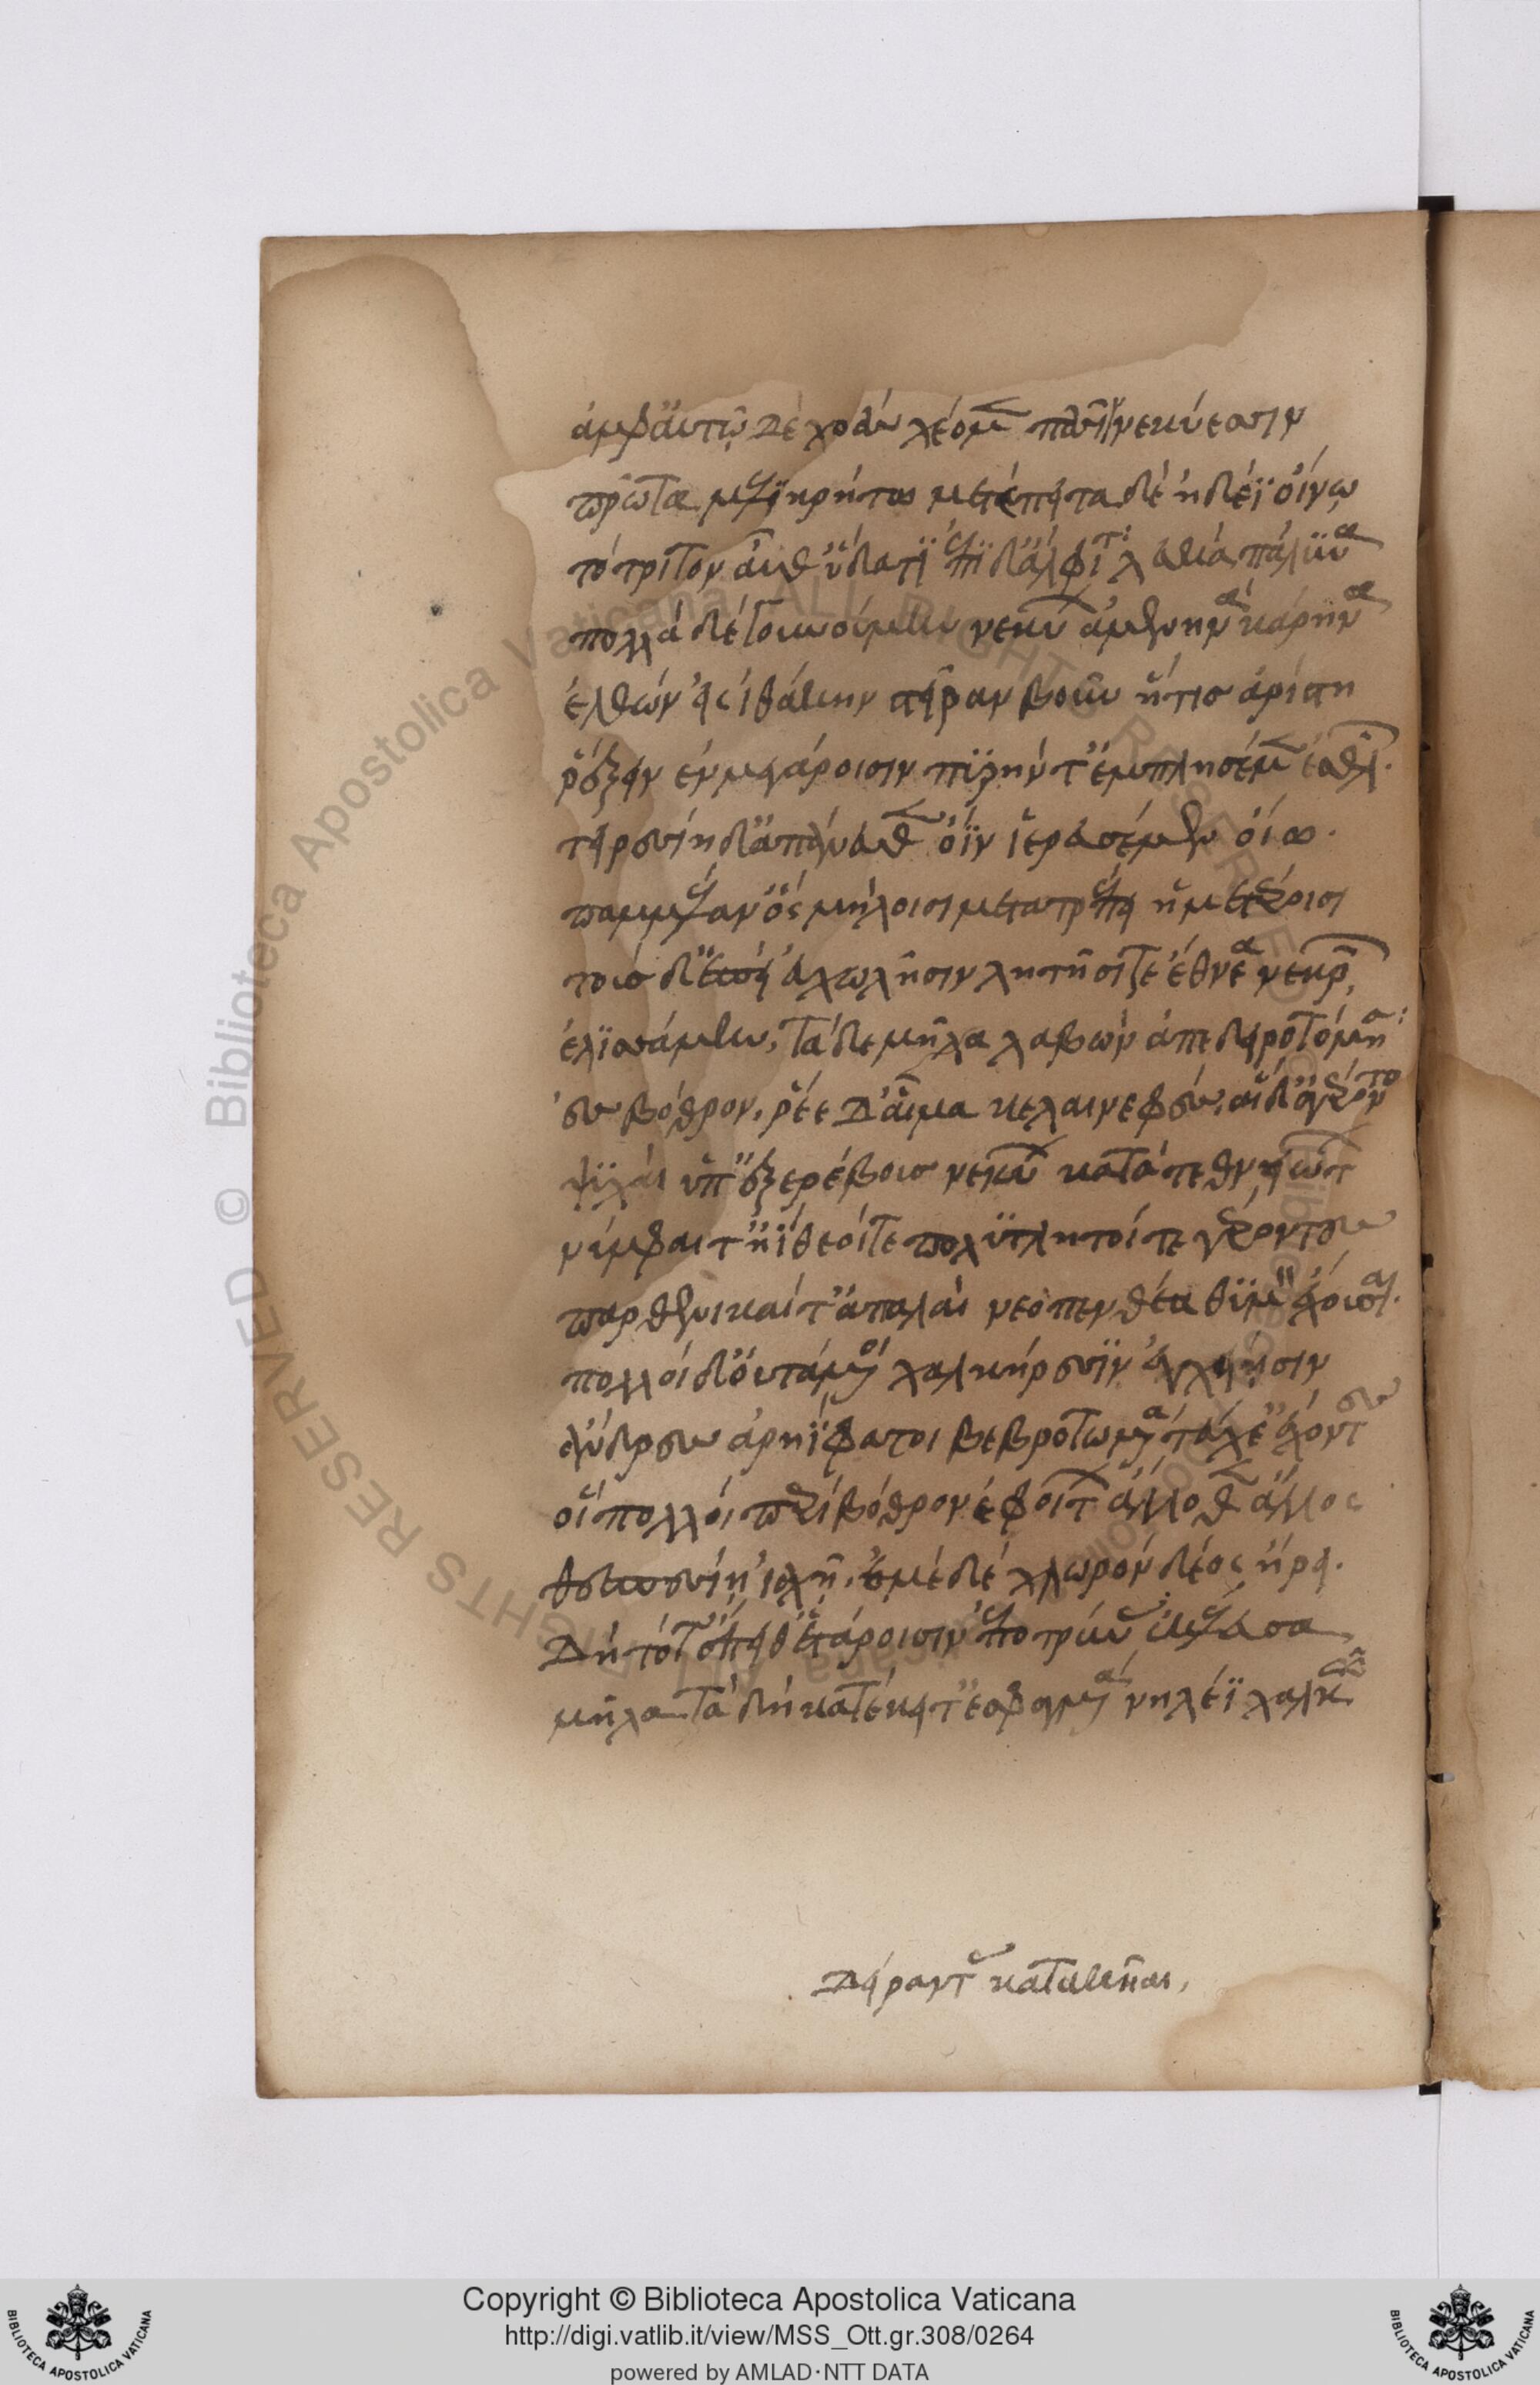 ἀμφ' αὐτῷ δὲ χοὰς χεόμην πᾶσιν νεκύεσσιν
πρῶτα μελικρήτῳ μετέπειτα δὲ ἡδέϊ οἴνῳ
τὸ τρίτον αὖθ' ὕδατι· ἐπὶ δ' ἄλφιτα λευκὰ πάλυνα
πολλὰ δὲ γουνούμην νεκύων ἀμενηνὰ κάρηνα
ἐλθὼν εἰς ἰθάκην στεῖραν βοῦν ἥτις ἀρίστη
ῥέξειν ἐν μεγάροισιν πυρήν τ' ἐμπλησέμεν ἐσθλῶν
τειρεσίῃ δ' ἀπάνευθεν ὄϊν ἱερευσέμεν οἴῳ
παμμέλαν' ὃς μήλοισι μεταπρέπει ἡμετέροισι
τοὺς δ' ἐπεὶ εὐχωλῇσιν λιτῇσί τε ἔθνεα νεκρῶν
ἐλισάμην, τὰ δὲ μῆλα λαβὼν ἀπεδειροτόμησα
ἐς βόθρον, ῥέε δ' αἷμα κελαινεφές, αἱ δ' ἀγέροντο
ψυχαὶ ὑπ' ἐξ ἐρέβους νεκύων κατατεθνειώτων
νύμφαι τ' ἠΐθεοί τε πολύτλητοί τε γέροντες
παρθενικαί τ' ἀταλαὶ νεοπενθέα θυμὸν ἔχουσαι
πολλοὶ δ' οὐτάμενοι χαλκήρεσιν ἐγχείῃσιν
ἄνδρες ἀρηΐφατοι βεβροτωμένα τεύχε' ἔχοντες
οἳ πολλοὶ περὶ βόθρον ἐφοίτων ἄλλοθεν ἄλλος
θεσπεσίῃ ἰαχῇ, ἐμὲ δὲ χλωρὸν δέος ᾕρει
δὴ τότ' ἔπειθ' ἑτάροισιν ἐποτρύνων ἐκέλευσα
μῆλα τὰ δὴ κατέκειτ' ἐσφαγμένα νηλέϊ χαλκῷ
δείραντας κατακῆαι,
Copyright © Biblioteca Apostolica Vaticana
http://digi.vatlib.it/view/MSS_Ott.gr.308/0264
powered by AMLAD·NTT DATA